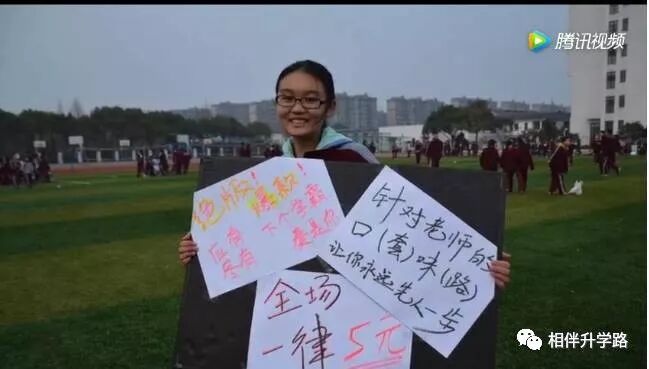 腾讯视频
绝版！爆款！
应有尽有
下个学霸就是你
针对老师的
口(套)味(路)
让你永远先人一步
全场
一律5元
相伴升学路